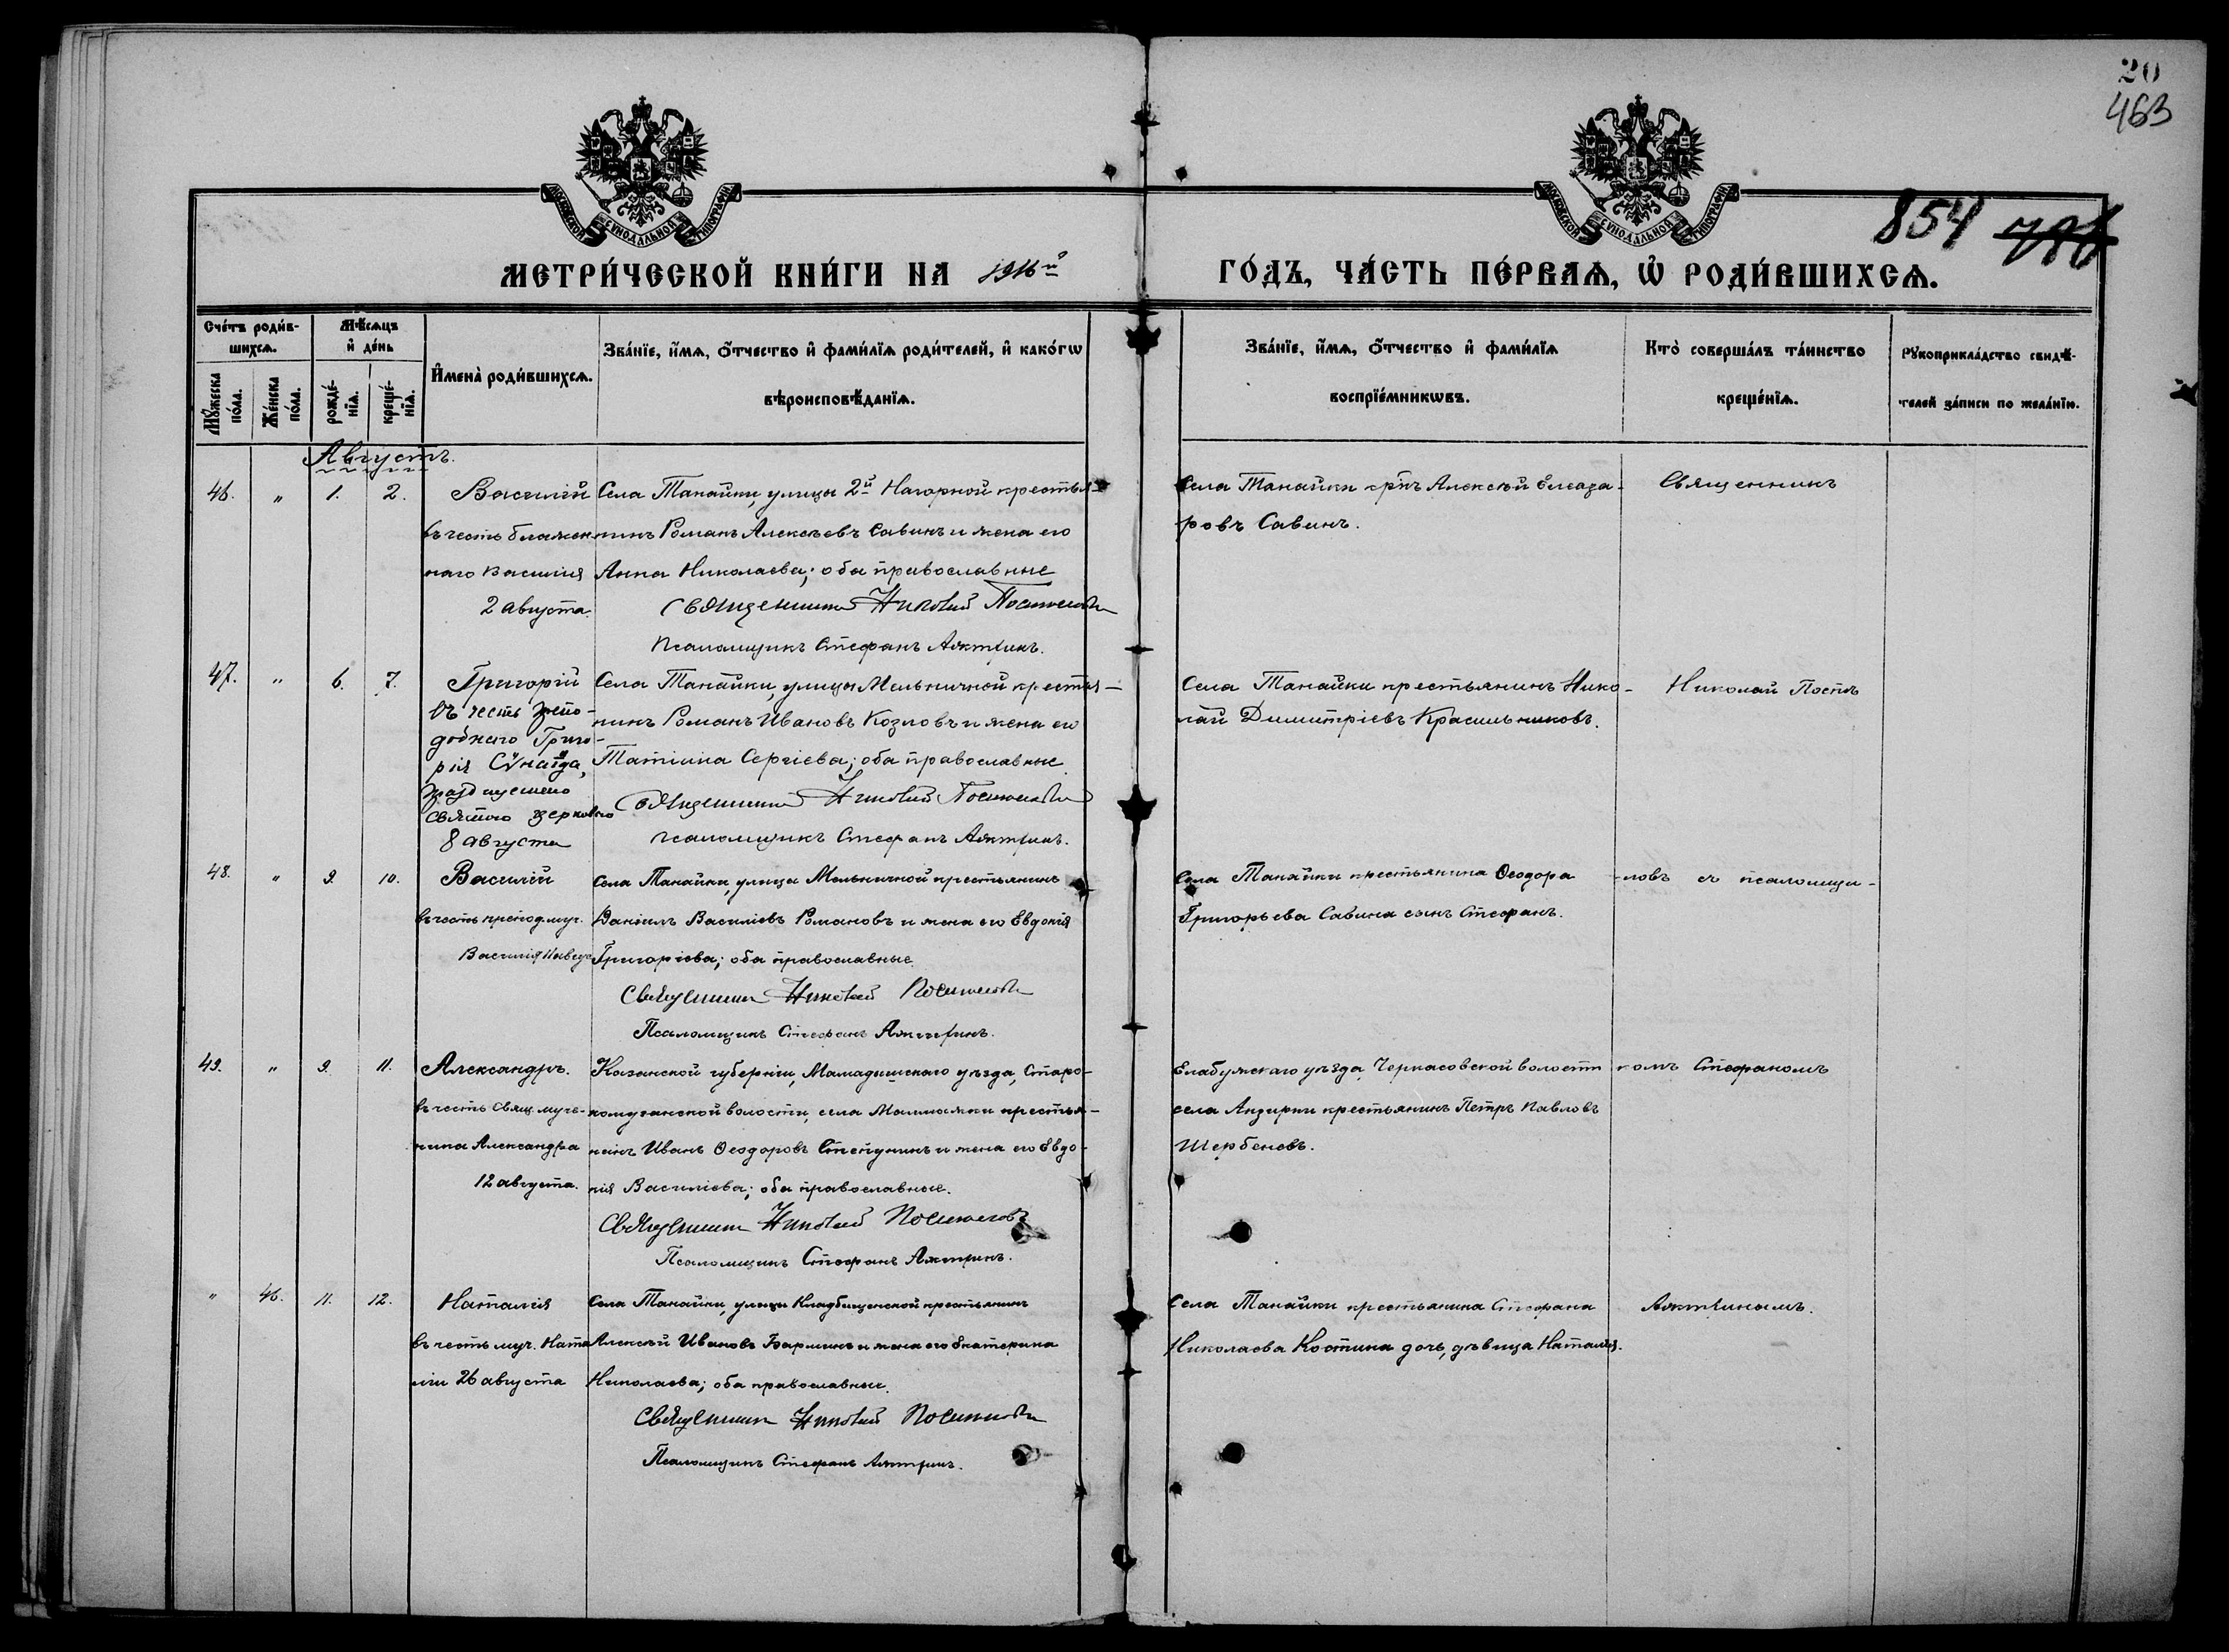 20
463
854
МОСКОВСКОЙ СѴНОДАЛЬНОЙ ТИПОГРАФІИ
МОСКОВСКОЙ СѴНОДАЛЬНОЙ ТИПОГРАФІИ
МЕТРИ́ЧЕСКОЙ КНИ́ГИ НА 1916й
ГО́ДЪ, ЧА́СТЬ ПЕ́РВАѦ, Ѡ҆ РОДИ́ВШИХСѦ.
Сче́тъ роди́в-
шихсѧ.
Мѣ́сѧцъ
и҆ де́нь
Мꙋ́жеска
по́ла.
Же́нска
по́ла.
рожде́-
нїѧ.
креще́-
нїѧ.
И҆мена̀ роди́вшихсѧ.
Зва́нїе, и҆́мѧ, ѻ҆́тчество и҆ фами́лїѧ роди́телей, и҆ како́гѡ
вѣроисповѣ́данїѧ.
Зва́нїе, и҆́мѧ, ѻ҆́тчество и҆ фами́лїѧ
воспрїе́мникѡвъ.
Кто̀ соверша́лъ та́инство
креще́нїѧ.
Рꙋкоприкла́дство свидѣ́-
телей за́писи по жела́нїю.
Августъ.
46. " 1. 2.
Василій
въ честь блажен-
наго Василія
2 августа.
Села Танайки, улицы 2й Нагорной крестья-
нинъ Романъ Алексѣевъ Савинъ и жена его
Анна Николаева; оба православные
Священникъ Николай
Псаломщикъ Стефанъ
Села Танайки кр҃нъ Алексѣй Елеаза-
ровъ Савинъ.
Священникъ
47. " 6. 7.
Григорій
въ честь препо-
добнаго Григо-
рія Сѵнаита,
празднуемаго
святою церковію
8 августа
Села Танайки, улицы Мельничной крестья-
нинъ Романъ Ивановъ Козловъ и жена его
Татіана Сергіева; оба православные.
Священникъ Николай
псаломщикъ Стефанъ
Села Танайки крестьянинъ Нико-
лай Димитріевъ Красильниковъ.
Николай
48. " 9. 10.
Василій
въ честь препод. муч.
Василія 11 авгус.
Села Танайки, улицы Мельничной крестьянинъ
Даніилъ Василіевъ Романовъ и жена его Евдокія
Григоріева; оба православные.
Священникъ Николай
Псаломщикъ Стефанъ
Села Танайки крестьянина Ѳеодора
Григорьева Савина сынъ Стефанъ.
-ловъ съ псаломщи-
49. " 9. 11.
Александръ.
въ честь свящ. муче-
ника Александра
12 августа.
Казанской губерніи, Мамадышскаго уѣзда, Старо-
волости, села крестья-
нинъ Иванъ Ѳеодоровъ Степунинъ и жена его Евдо-
кія Василіева; оба православные.
Священникъ Николай
Псаломщикъ Стефанъ
Елабужскаго уѣзда Черкасовской волости
села Анзирки крестьянинъ Петръ Павловъ
Щербеневъ.
комъ Стефаномъ
" 46. 11. 12.
Наталія
въ честь муч. Ната-
ліи 26 августа
Села Танайки, улицы Кладбищенской крестьянинъ
Алексѣй Ивановъ Барминъ и жена его Екатерина
Николаева; оба православные.
Священникъ Николай
Псаломщикъ Стефанъ
Села Танайки крестьянина Стефана
Николаева Костина дочь, дѣвица Наталія.